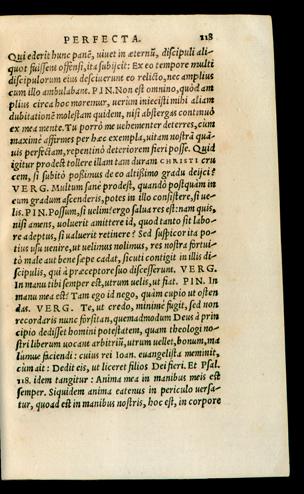 PERFECTA. 218
Qui ederit hunc panē, uiuet in æternū, discipuli ali-
quot fuissent offensi, ita subijcit: Ex eo tempore multi
discipulorum eius desciuerunt eo relicto, nec amplius
cum illo ambulabant. PIN. Non est omnino, quòd am
plius circa hoc moremur, uerùm iniecisti mihi aliam
dubitationē molestam quidem, nisi abstergas continuò
ex mea mente. Tu porrò me uehementer deterres, cùm
maximè affirmes per hæc exempla, uitam nostrā quā-
uis perfectam, repentinò deteriorem fieri posse. Quid
igitur prodest tollere illam tam duram CHRISTI cru
cem, si subitò possimus de eo altissimo gradu deijci?
VERG. Multum sanè prodest, quandò postquàm in
eum gradum ascenderis, potes in illo consistere, si ue-
lis. PIN. Possum, si uelim? ergo salua res est: nam quis,
nisi amens, uoluerit amittere id, quod tanto sit labo-
re adeptus, si ualuerit retinere? Sed suspicor ita po-
tius usu uenire, ut uelimus nolimus, res nostra fortui-
tò male aut bene sæpe cadat, sicuti contigit in illis di-
scipulis, qui à præceptore suo discesserunt. VERG.
In manu tibi semper est, utrum uelis, ut fiat. PIN. In
manu mea est? Tam ego id nego, quàm cupio ut osten
das. VERG. Te, ut credo, minimè fugit, sed non
recordaris nunc forsitan, quemadmodum Deus à prin
cipio dedisset homini potestatem, quam theologi no-
stri liberum uocant arbitriū, utrum uellet, bonum, ma
lumue faciendi: cuius rei Ioan. euangelista meminit,
cùm ait: Dedit eis, ut liceret filios Dei fieri. Et Psal.
118. idem tangitur: Anima mea in manibus meis est
semper. Siquidem anima eatenus in periculo uersa-
tur, quoad est in manibus nostris, hoc est, in corpore